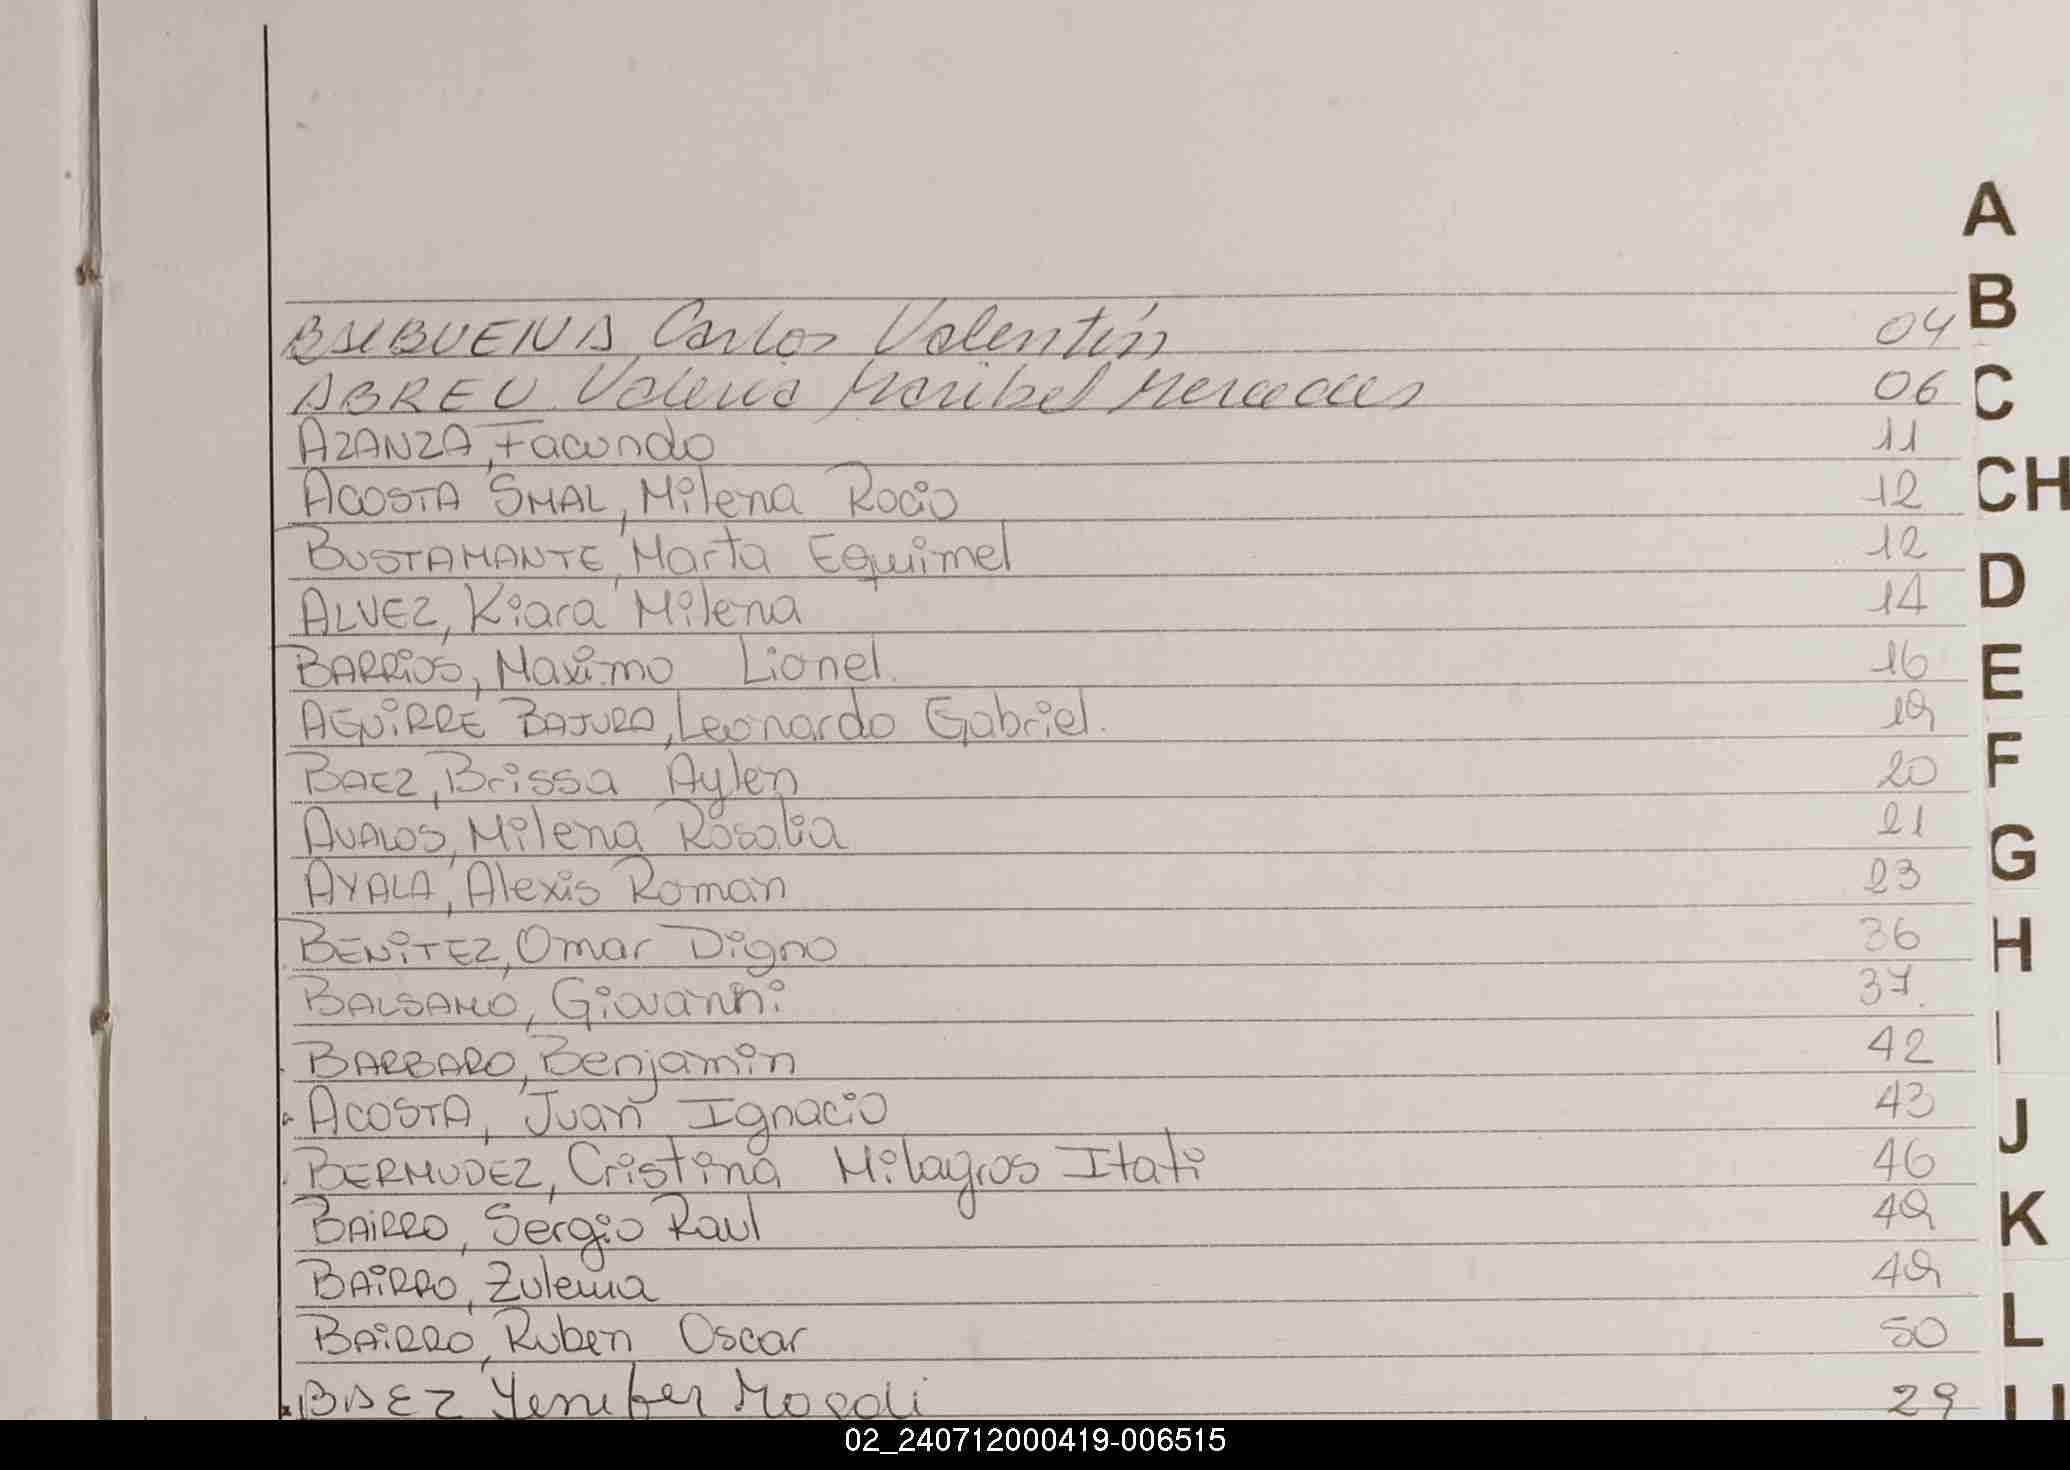 BALBUENA Carlos Valentín 04
ABREU Valeria Maribel Mercedes 06
AZANZA, Facundo 11
ACOSTA SMAL, Milena Rocio 12
BUSTAMANTE, Marta Equimel 12
ALVEZ, Kiara Milena 14
BARRiOS, Maximo Lionel. 16
AGUiRRE BAJURA, Leonardo Gabriel. 19
BAEZ, Brissa Aylen 20
AVALOS, Milena Rosalia 21
AYALA, Alexis Roman 23
BENiTEZ, Omar Digno 36
BALSAMO, Giovanni 37.
BARBARO, Benjamin 42
ACOSTA, Juan Ignacio 43
BERMUDEZ, Cristina Milagros Itati 46
BAiRRO, Sergio Raul 49
BAiRRO, Zulema 49
BAiRRO, Ruben Oscar 50
BAEZ Yenifer Magali 29
A
B
C
CH
D
E
F
G
H
I
J
K
L
02_240712000419-006515